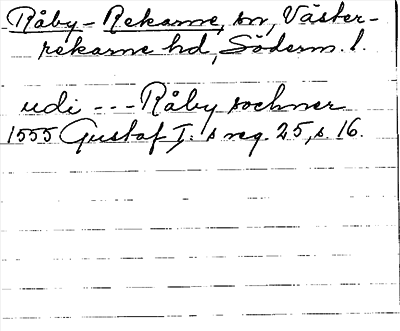 Råby-Rekarne, sn, Väster-
rekarne hd, Söderm. l.
udi --- Råby sochner
1555 Gustaf I:s reg. 25, s. 16.